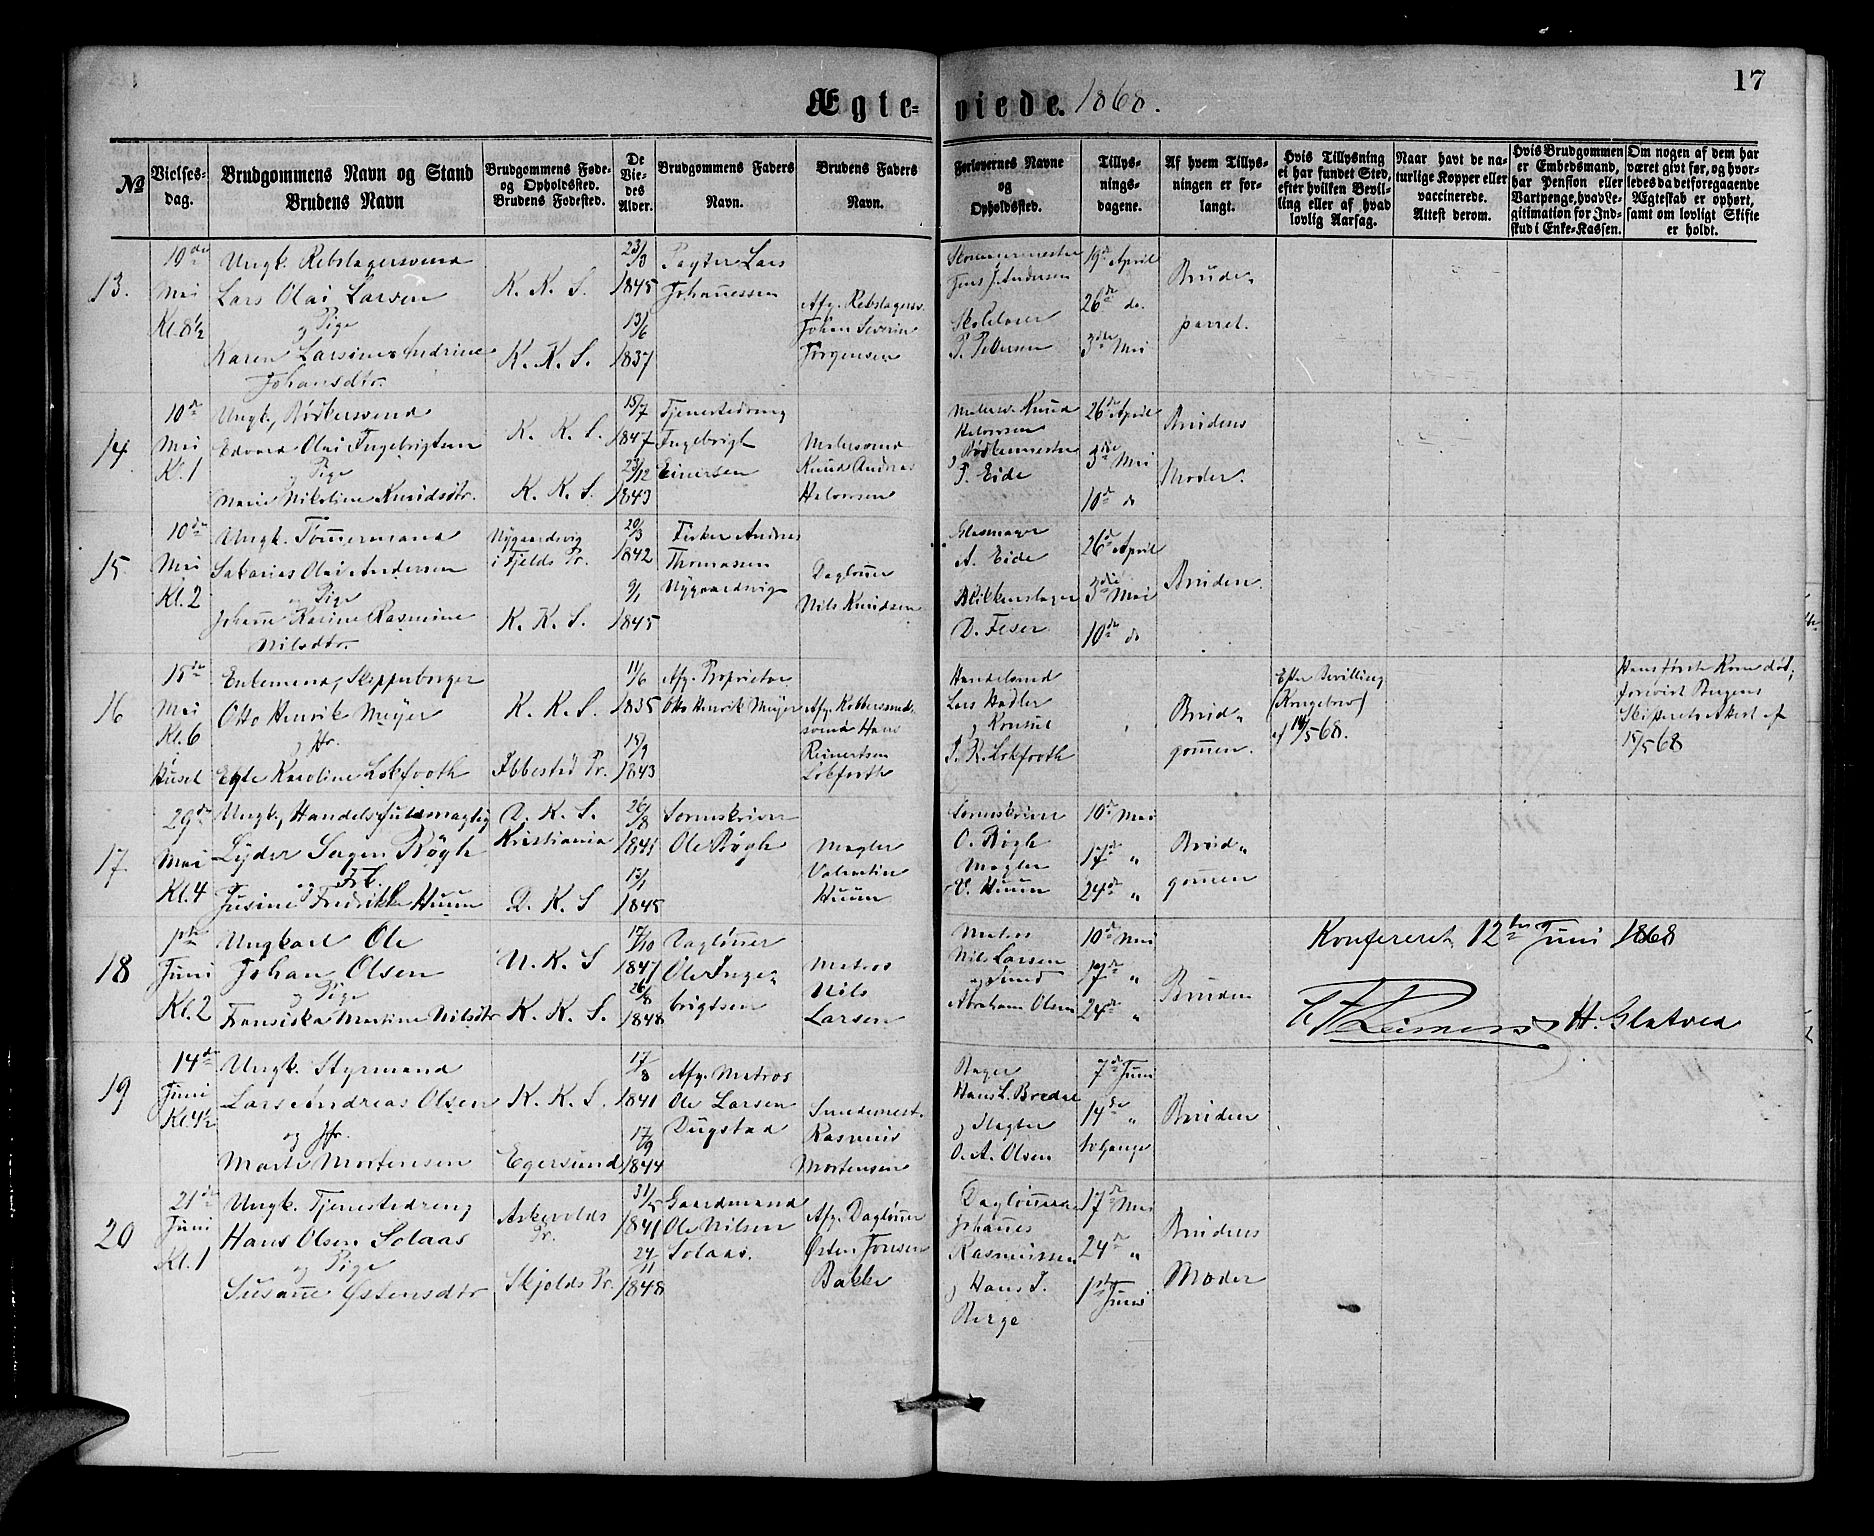 17
Ægteviede. 1868.
№
Vielsesdag.
Brudgommens Navn og Stand
Brudens Navn
Brudgommens Føde-
og Opholdssted.
Brudens Fødested.
De
Vie-
des
Alder.
Brudgommens Faders
Navn.
Brudens Faders
Navn.
Forlovernes Navne
og
Opholdssted.
Tillys-
nings-
dagene.
Af hvem Tillys-
ningen er for-
langt.
Hvis Tillysning
ei har fundet Sted,
efter hvilken Bevil-
ling eller af hvad
lovlig Aarsag.
Naar havt de na-
turlige Kopper eller
vaccinerede.
Attest derom.
Hvis Brudgommen
er Embedsmand,
har Pension eller
Vartpenge, hvad Le-
gitimation for Ind-
skud i Enke-Kassen.
Om nogen af dem har
været givt før, og hvor-
ledes da det foregaaende
Ægteskab er ophørt,
samt om lovligt Skifte
er holdt.
13.
10de
Mai
Kl. 8½
Ungk. Rebslagersvend
Lars Olai Larsen
og Pige
Karen Larsine Andrine
Johansdtr.
K. K. S.
K. K. S.
23/3
1845
13/6
1837
Pagter Lars
Johannessen
Afg. Rebslagersv.
Johan Severin
Jørgensen
Jens J. Andersen
Skolelærer
P. Pedersen
19de April
26de do.
3die Mai
Brude-
parret.
14
10de
Mai
Kl. 1
Ungk., Bødkersvend
Edvard Olai Ingebrigtsen
og Pige
Marie Nikoline Knudsdtr.
K. K. S.
K. K. S.
15/7
1847
23/12
1843
Tjenestedreng
Ingebrigt
Einersen
Malersvend
Knud Andreas
Halvorsen
Malersv. Knud
Halvorsen
og Bødkermester
P. Eide
26de April
3die Mai
10de do
Brudens
Moder.
15
10de
Mai
Kl. 2
Ungk. Tømmermand
Sakarias Olai Andersen
og Pige
Johanne Karine Rasmine
Nilsdtr.
Nygaardsvig
i Fjelds Pr.
K. K. S.
20/3
1842
9/1
1845
Fisker Andreas
Thomassen
Nygaardsvig
Dagløner
Nils Knudsen
Glasmager
A. Eide
Blikkenslager
D. Feser
26de April
3die Mai
10de do
Bruden.
16
15de
Mai
Kl. 6
i
Huset
Enkemand, Skipperborger
Otto Henrik Meyer
og Jfr.
Karoline Lokfooth
K. K. S.
Ibbestad Pr.
11/6
1835
15/9
1843
Afg. Proprietær
Otto Henrik Meyer
Afg. Kobbersmed-
svend Hans
Reinertsen
Lokfooth
Handelsmd
Lars Hadler
og Konsul
J. R. Lokfooth
Brud-
gommen.
Efter Bevilling
(Kongebrev)
af 14/5 68.
Hans første Kone død,
forevist Bergens
Skifterets Attest af
15/5 68
17
29de
Mai
Kl. 4
Ungk., Handelsfuldmægtig
Lyder Sagen Rögh
og Frk.
Jusine Fredrikke Huun
D. K. S.
Kristiania
D. K. S
26/8
1841
13/1
1845
Sorenskriver
Ole Rögh
Mægler
Valentin
Huun
Sorenskriver
O. Rögh
Mægler
V. Huun
10de Mai
17de "
24de "
Brud-
gommen
18
1ste
Juni
Kl. 2
Ungkarl Ole
Johan Olsen
og Pige
Fransiska Martine Nilsdtr
N. K. S
K. K. S.
17/10
1847
26/8
1848
Dagløner
Ole Inge-
brigtsen
Matros
Nils
Larsen
Matros
Nils Larsen
Abraham Olsen
10de Mai
17de "
24de "
Bruden
Konfereret 12te Juni 1868
H. Glatved
19
14de
Juni
Kl. 4½
Ungk. Styrmand
Lars Andreas Olsen
og Jfr.
Marte Mortensen
K. K. S.
Egersund
17/8
1841
17/9
1844
Afg. Matros
Ole Larsen
Dugstad
Smedemest.
Rasmus
Mortensen
Bager
Hans L. Bredal
og Slagter
O. A. Olsen
7de Juni
14de "
to Gange
Bruden
20
21de
Juni
Kl. 1
Ungk. Tjenestedreng
Hans Olsen Solaas
og Pige
Susanne Østensdtr
Askevolds
Pr.
Skjolds Pr.
31/5
1841
24/11
1848
Gaardmand
Ole Nilsen
Solaas.
Afg. Dagløner
Østen Jonsen
Bakke
Dagløn.
Johannes
Rasmussen
og Hans J.
Berge
17de Mai
24de "
1ste Juni
Brudens
Moder